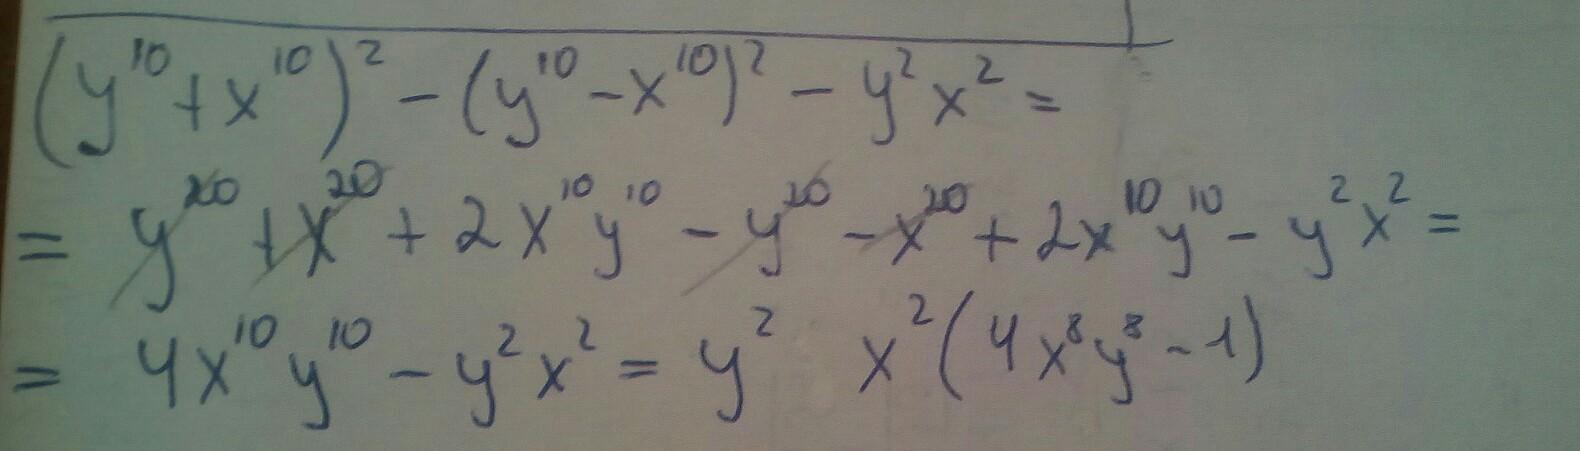 (y¹⁰+x¹⁰)² - (y¹⁰-x¹⁰)² - y²x² =
= y²⁰ + x²⁰ + 2x¹⁰y¹⁰ - y²⁰ - x²⁰ + 2x¹⁰y¹⁰ - y²x² =
= 4x¹⁰y¹⁰ - y²x² = y² x²(4x⁸y⁸ - 1)